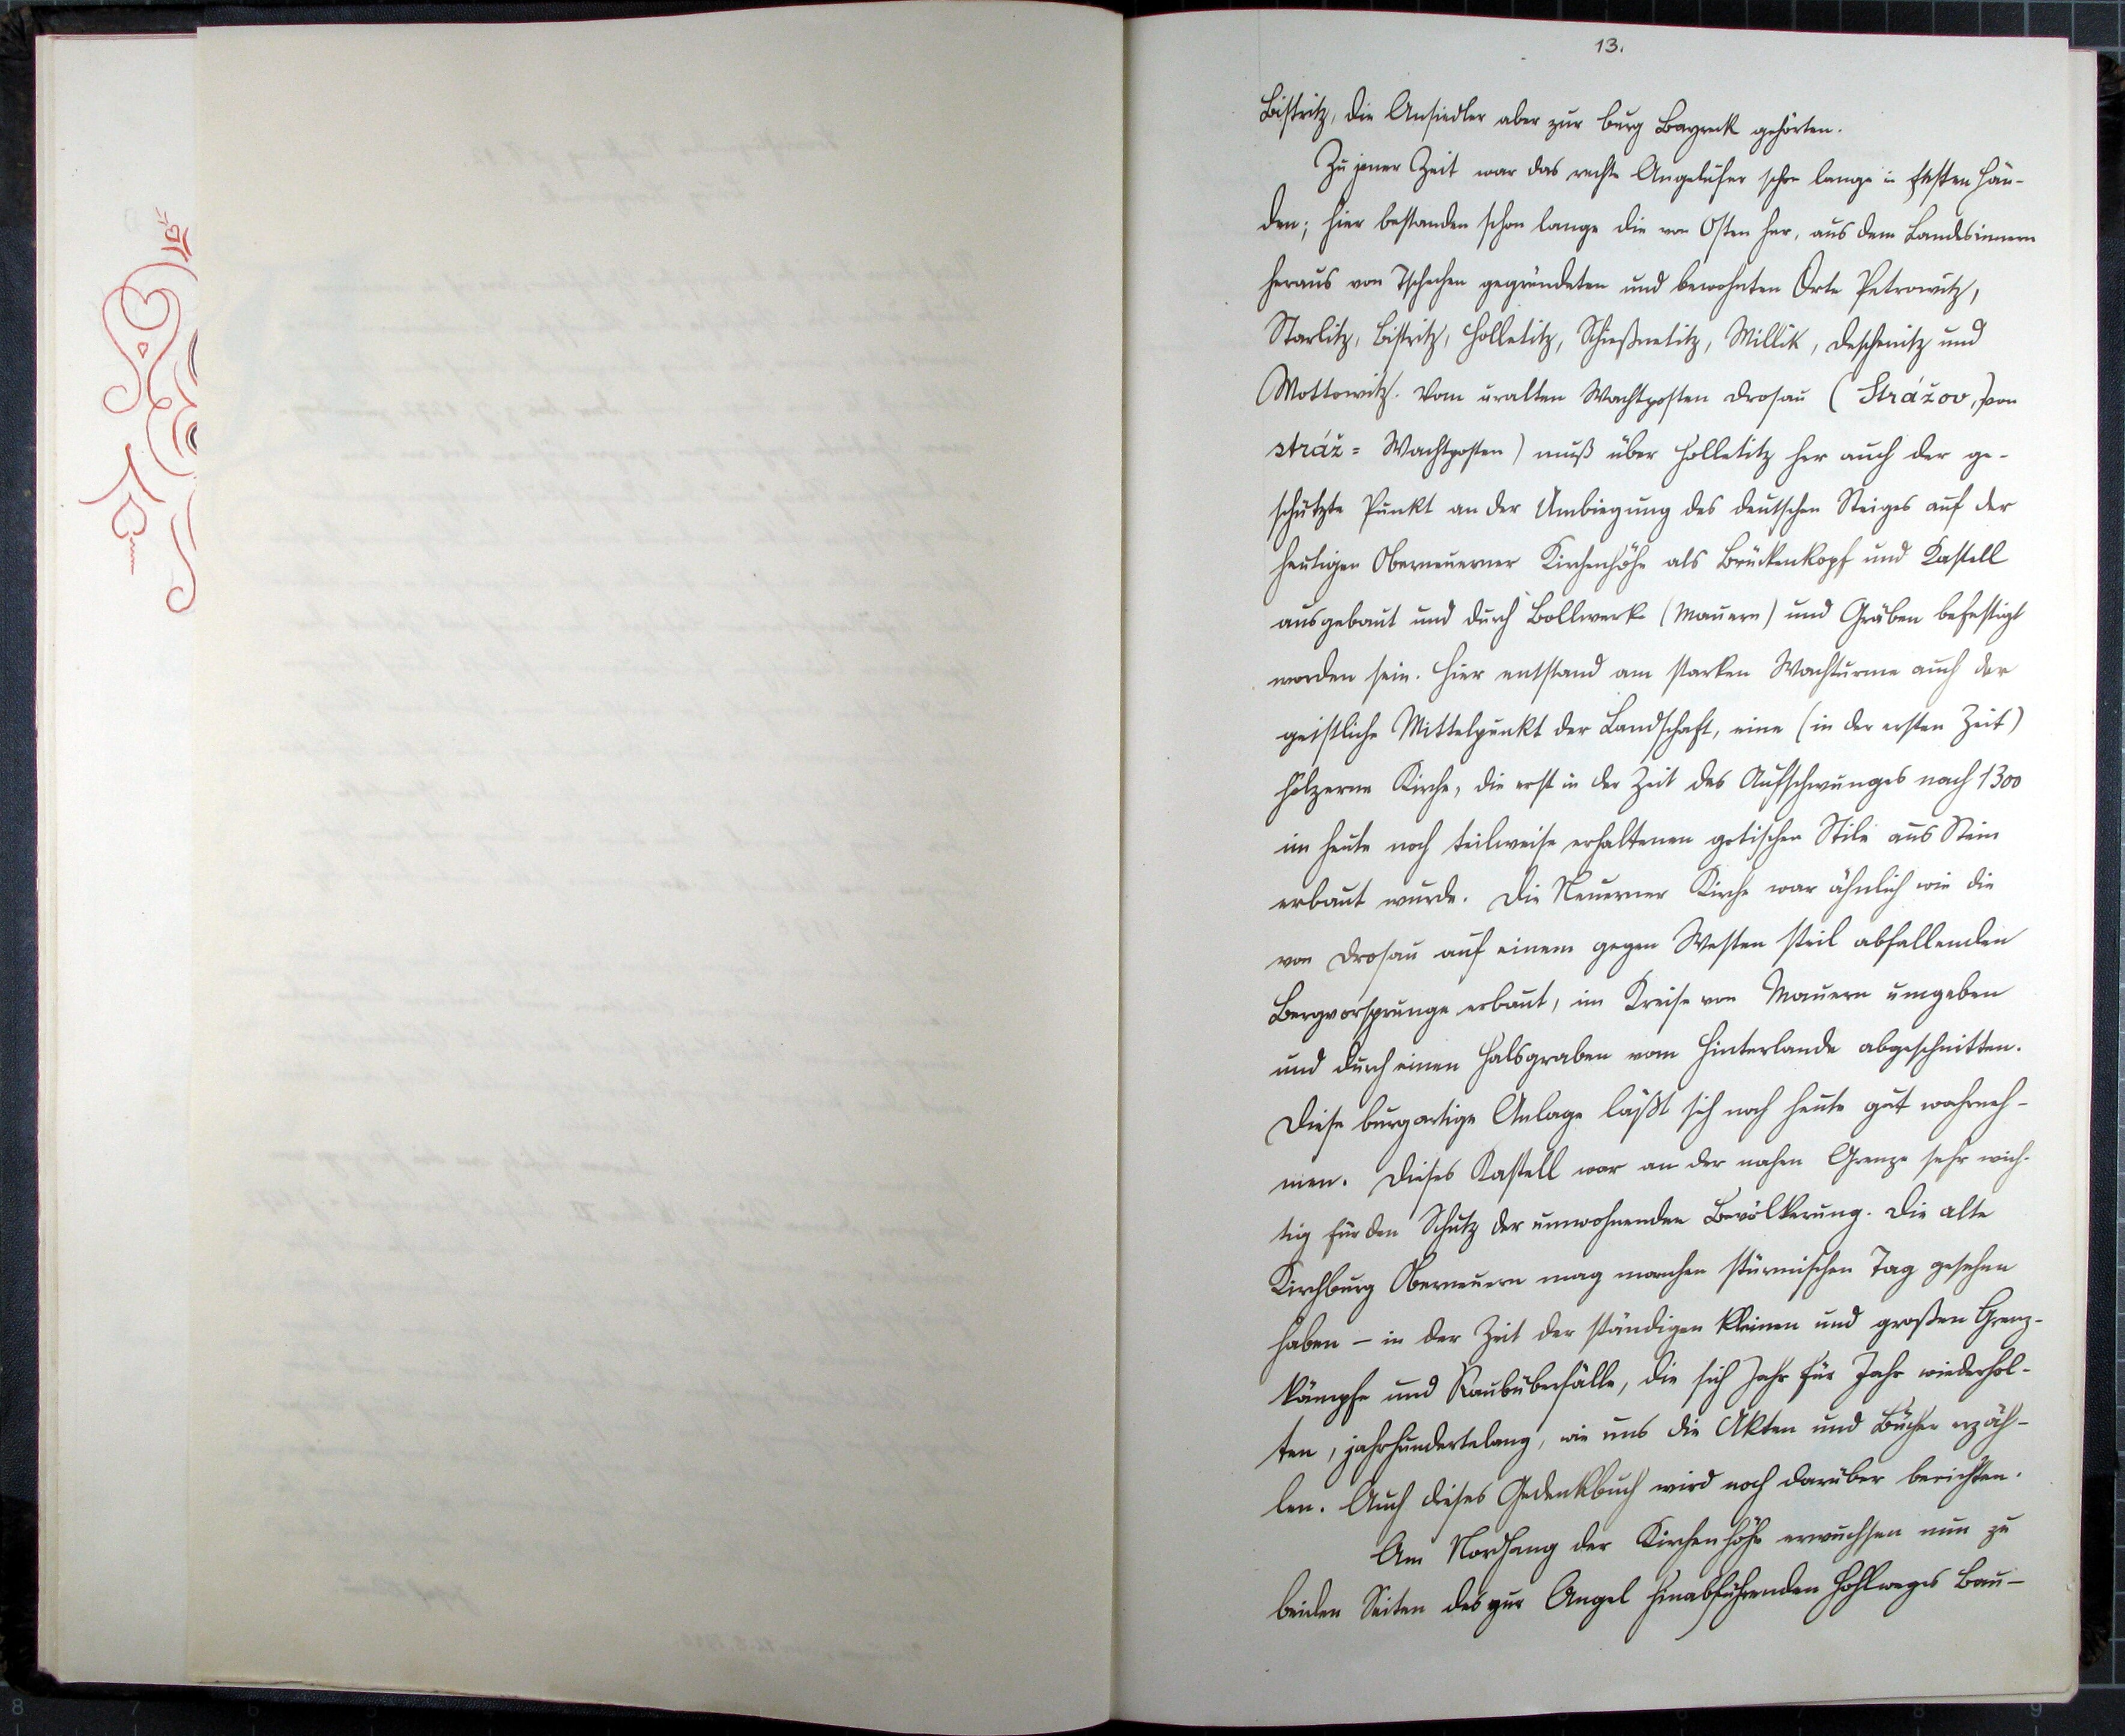 13.
Bistritz, die Ansiedler aber zur Burg Bayreck gehörten.
Zu jener Zeit war das rechte Angelufer schon lange in festen Hän-
den; hier bestanden schon lange die von Osten her, aus dem Landesinnern
heraus von Tschechen gegründeten und bewohnten Orte Petrowitz,
Starlitz, Bistritz, Holletitz, Schießnetitz, Millik, Deschenitz und
Mottowitz. Vom uralten Wachtposten Drosau (Strážov, von
stráž = Wachtposten) muß über Holletitz her auch der ge-
schützte Punkt an der Umbiegung des deutschen Steiges auf der
heutigen Oberneuerner Kirchenhöhe als Brückenkopf und Kastell
ausgebaut und durch Bollwerke (Mauern) und Gräben befestigt
worden sein. Hier entstand am starken Wachturme auch der
geistliche Mittelpunkt der Landschaft, eine (in der ersten Zeit)
hölzerne Kirche, die erst in der Zeit des Aufschwunges nach 1300
im heute noch teilweise erhaltenen gotischen Stile aus Stein
erbaut wurde. Die Neuerner Kirche war ähnlich wie die
von Drosau auf einem gegen Westen steil abfallenden
Bergvorsprunge erbaut, im Kreise von Mauern umgeben
und durch einen Halsgraben vom Hinterlande abgeschnitten.
Diese burgartige Anlage läßt sich noch heute gut wahrneh-
men. Dieses Kastell war an der nahen Grenze sehr wich-
tig für den Schutz der umwohnenden Bevölkerung. Die alte
Kirchburg Oberneuern mag manchen stürmischen Tag gesehen
haben – in der Zeit der ständigen kleinen und großen Grenz-
kämpfe und Raubüberfälle, die sich Jahr für Jahr wiederhol-
ten, jahrhundertelang, wie uns die Akten und Bücher erzäh-
len. Auch dieses Gedenkbuch wird noch darüber berichten.
Am Nordhang der Kirchenhöhe erwuchsen nun zu
beiden Seiten des zur Angel hinabführenden Hohlweges Bau-